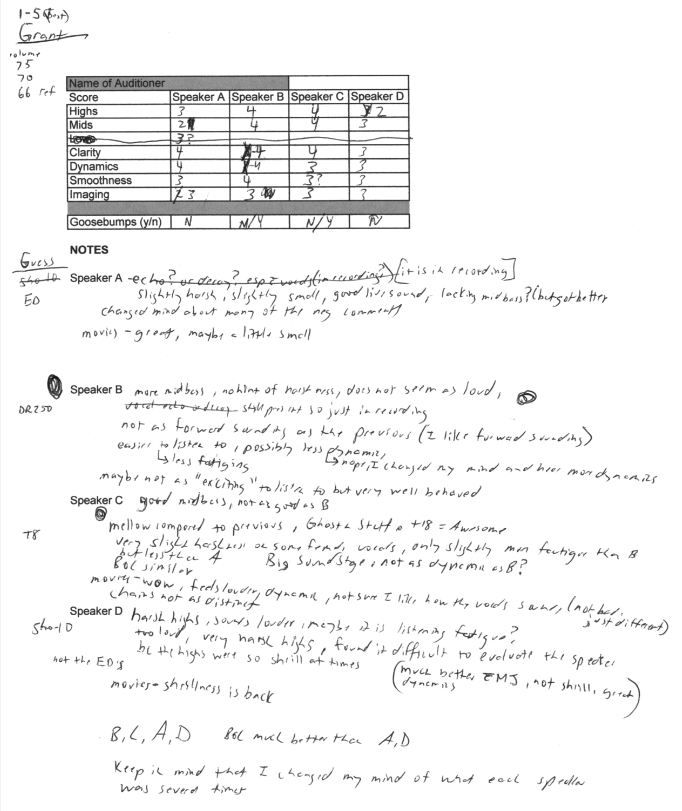 1-5 (best)
Grant
volume
75
70
66 ref
Name of Auditioner
Score Speaker A Speaker B Speaker C Speaker D
Highs 3 4 4 2
Mids 2 4 4 3
Lows 3?
Clarity 4 4 4 3
Dynamics 4 4 3 3
Smoothness 3 4 3? 3
Imaging 3 3 3 3
Goosebumps (y/n) N N/Y N/Y N
NOTES
Guess
Sho-10
ED
Speaker A - echo? or decay? esp z words (in recording?) [it is in recording]
slightly harsh, slightly small, good live sound, lacking midbass? (but got better
changed mind about many of the neg comments
movies - great, maybe a little small
DR250
Speaker B more midbass, no hint of harshness, does not seem as loud,
vocal echo or decay still present so just in recording
not as forward sounding as the previous (I like forward sounding)
easier to listen to, possibly less dynamic,
less fatiging nope, I changed my mind and hear more dynamics
maybe not as "exciting" to listen to but very well behaved
T8
Speaker C good midbass, not as good as B
mellow compared to previous, Ghost n Stuff @ +18 = Awesome
very slight harshness on some vocals, only slightly more than B
but less than A Big Soundstage, not as dynamic as B?
B&C similar
movies - wow, feels louder, dynamic, not sure I like how the vocals sound, (not bad,
just different)
chains not as distinct
Sho-10
Speaker D harsh highs, sounds louder, maybe it is listening fatigue?
too loud, very harsh highs, found it difficult to evaluate the speaker
bc the highs were so shrill at times
not the ED's
(much better EMJ, not shrill, great
dynamics)
movies - shrillness is back
B, C, A, D B&C much better than A, D
Keep in mind that I changed my mind of what each speaker
was several times